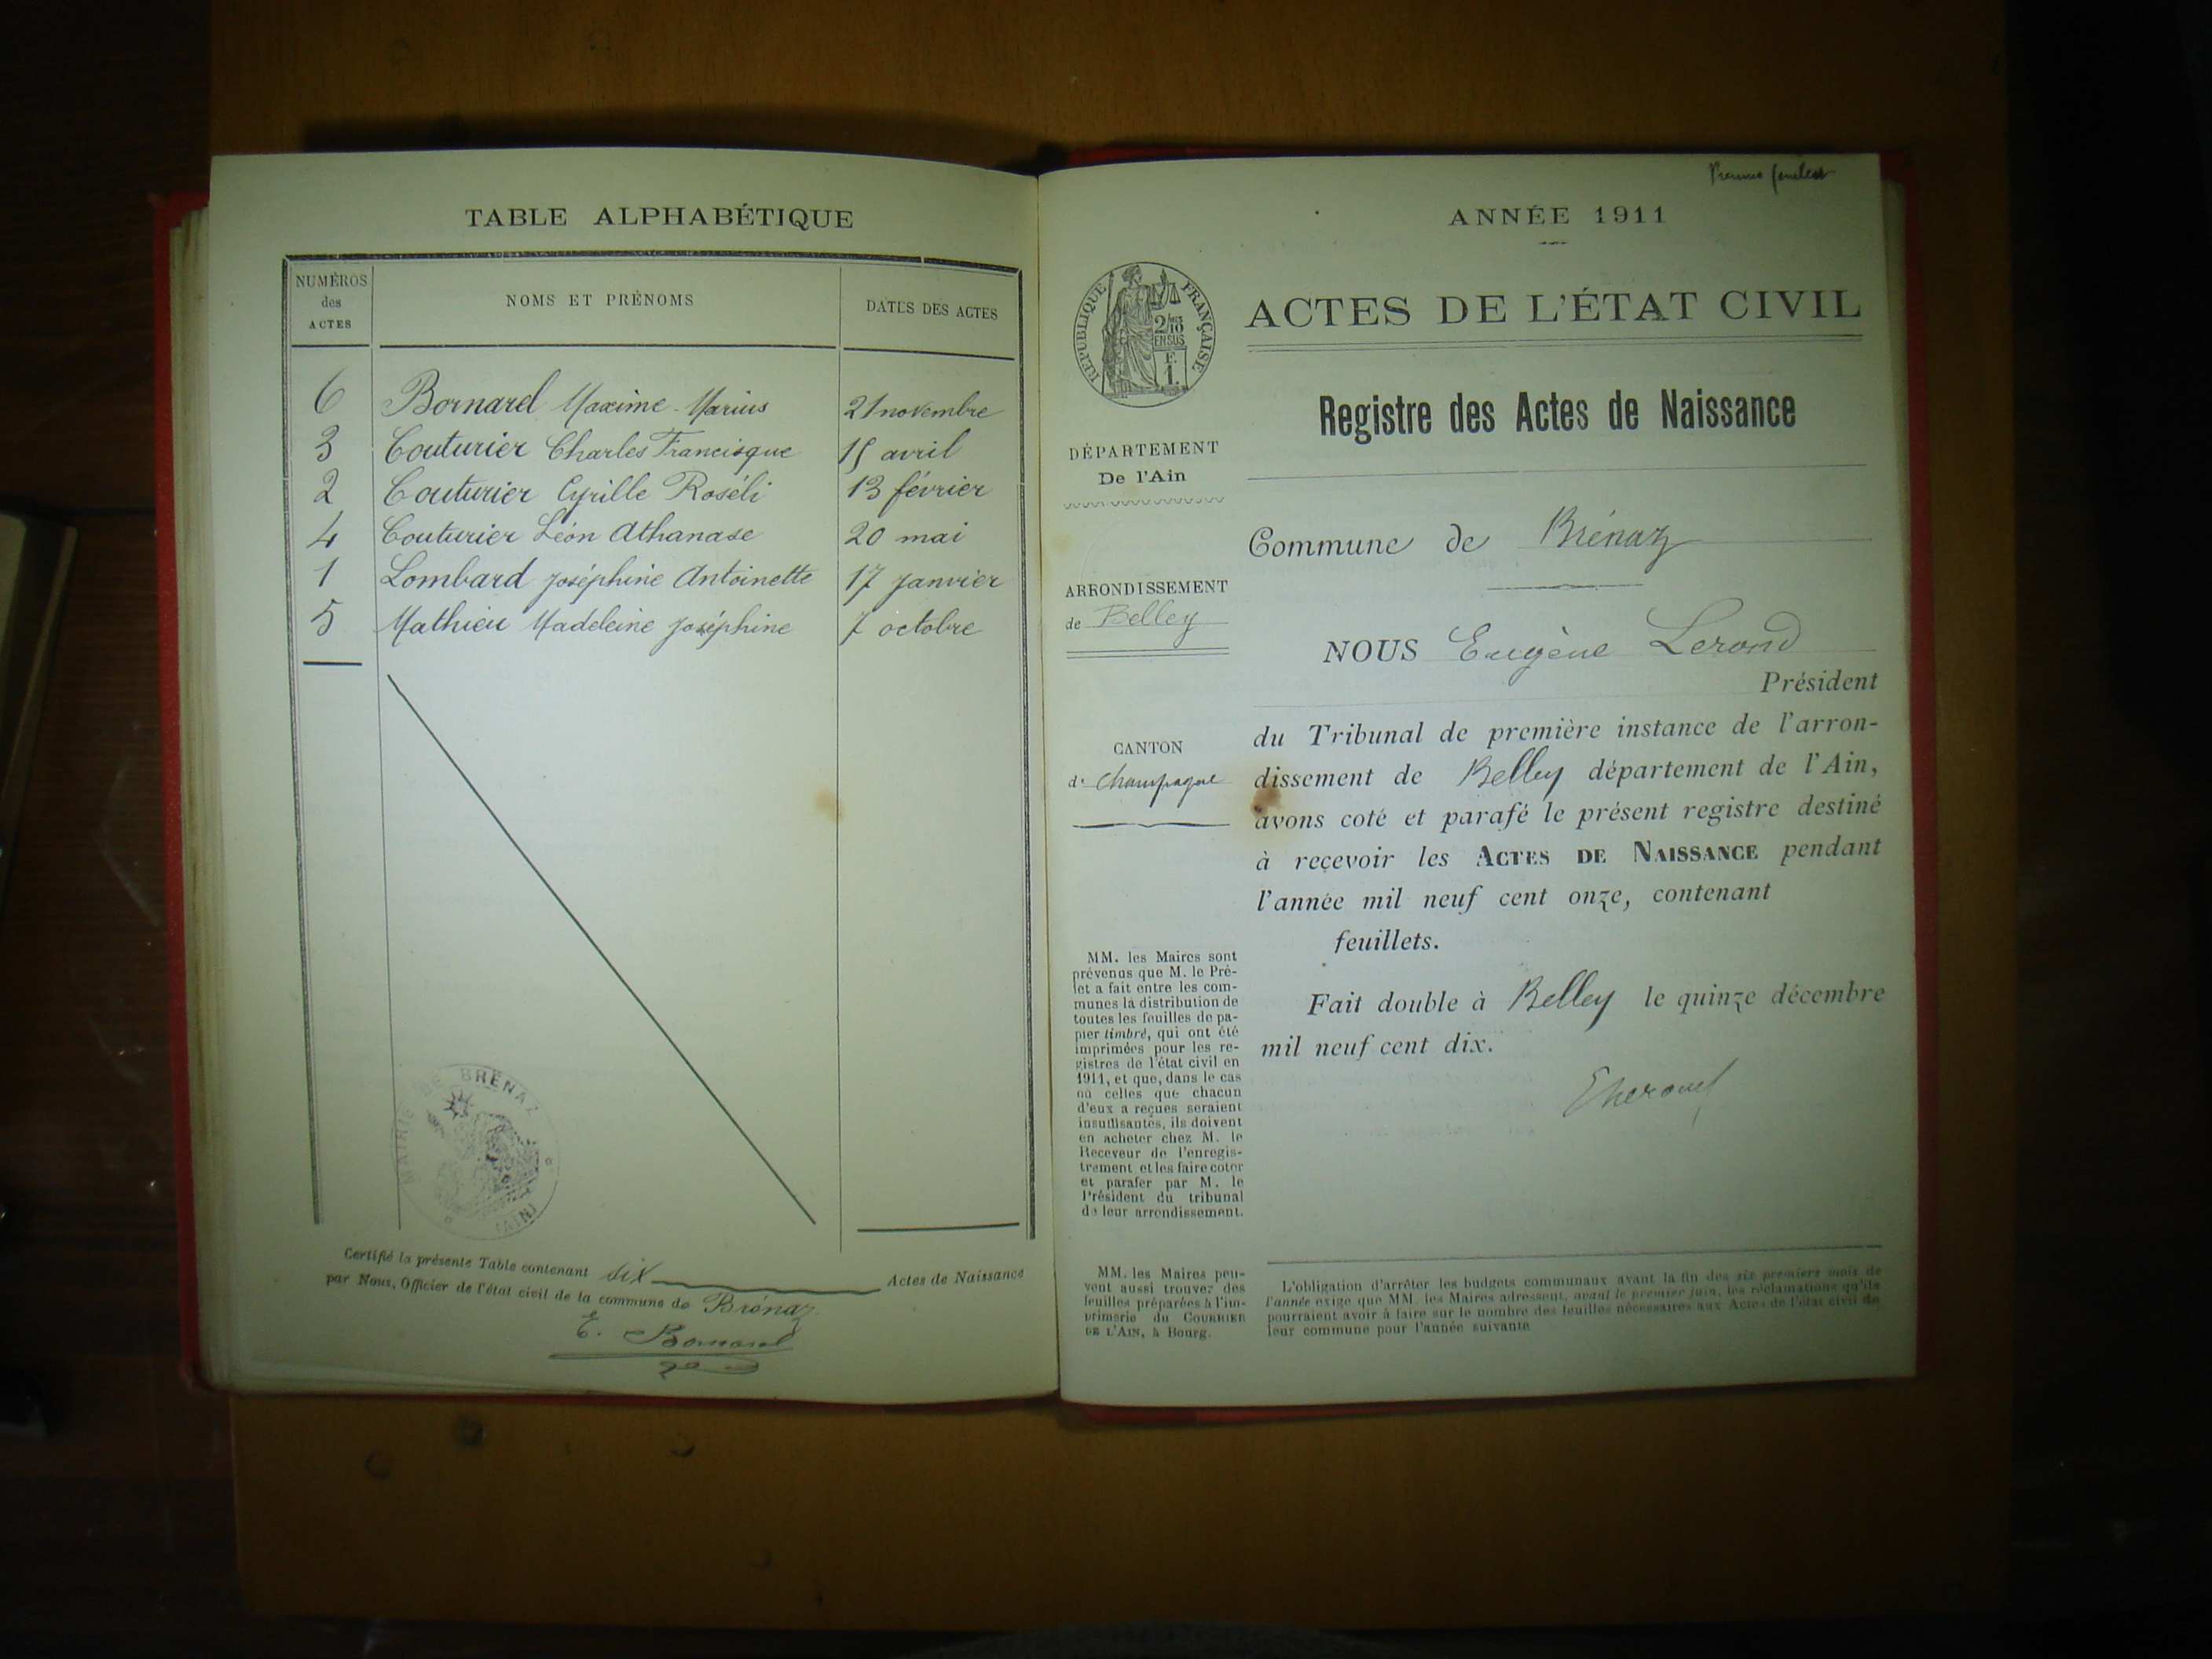 TABLE ALPHABÉTIQUE
NUMÉROS
des
ACTES
NOMS ET PRÉNOMS
DATES DES ACTES
6 Bornarel Maxime-Marius 21 novembre
3 Couturier Charles Francisque 15 avril
2 Couturier Cyrille Roséli 13 février
4 Couturier Léon Athanase 20 mai
1 Lombard Joséphine Antoinette 17 janvier
5 Mathieu Madeleine Joséphine 7 octobre
MAIRIE DE BRÉNAZ
(AIN)
Certifié la présente Table contenant six Actes de Naissance
par Nous, Officier de l'état civil de la commune de Brénaz
E. Bornarel
Premier feuillet
ANNÉE 1911
RÉPUBLIQUE FRANÇAISE
2/10
EN SUS
F.
1.
ACTES DE L'ÉTAT CIVIL
Registre des Actes de Naissance
DÉPARTEMENT
De l'Ain
ARRONDISSEMENT
de Belley
CANTON
de Champagne
Commune de Brénaz
NOUS Eugène Lerond
Président
du Tribunal de première instance de l'arron-
dissement de Belley département de l'Ain,
avons coté et parafé le présent registre destiné
à recevoir les ACTES DE NAISSANCE pendant
l'année mil neuf cent onze, contenant
feuillets.
Fait double à Belley le quinze décembre
mil neuf cent dix.
MM. les Maires sont
prévenus que M. le Pré-
fet a fait entre les com-
munes la distribution de
toutes les feuilles de pa-
pier timbré, qui ont été
imprimées pour les re-
gistres de l'état civil en
1911, et que, dans le cas
où celles que chacun
d'eux a reçues seraient
insuffisantes, ils doivent
en acheter chez M. le
Receveur de l'enregis-
trement et les faire coter
et parafer par M. le
Président du tribunal
de leur arrondissement.
MM. les Maires peu-
vent aussi trouver des
feuilles préparées à l'im-
primerie du COURRIER
DE L'AIN, à Bourg.
L'obligation d'arrêter les budgets communaux avant la fin des six premiers mois de
l'année exige que MM. les Maires adressent, avant le premier juin, les réclamations qu'ils
pourraient avoir à faire sur le nombre des feuilles nécessaires aux Actes de l'état civil de
leur commune pour l'année suivante